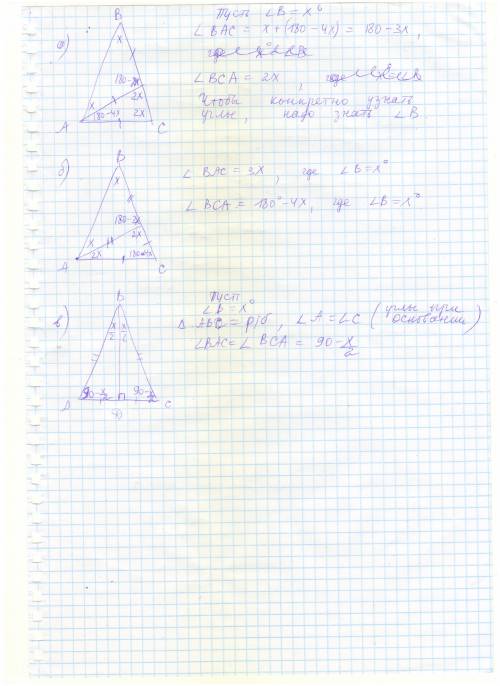 Пусть ∠B = x°
а)
B
x
180-2x
2x
x
180-4x
2x
A
C
∠BAC = x + (180 - 4x) = 180 - 3x,
где
∠BCA = 2x ,
Чтобы конкретно узнать
углы, надо знать ∠B.
б)
B
x
180-2x
2x
x
2x
180-4x
A
C
∠BAC = 3x , где ∠B = x°
∠BCA = 180° - 4x, где ∠B = x°
Пусть
∠B = x°
в)
B
x/2
x/2
90-x/2
90-x/2
A
D
C
Δ ABC = р/б , ∠A = ∠C (углы при
основании)
∠BAC = ∠BCA = 90 - x/2